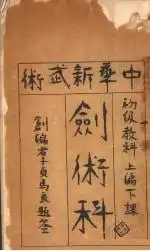 中華新武術
初級教科 上編下課
劍術科
創編者子貞馬良題簽